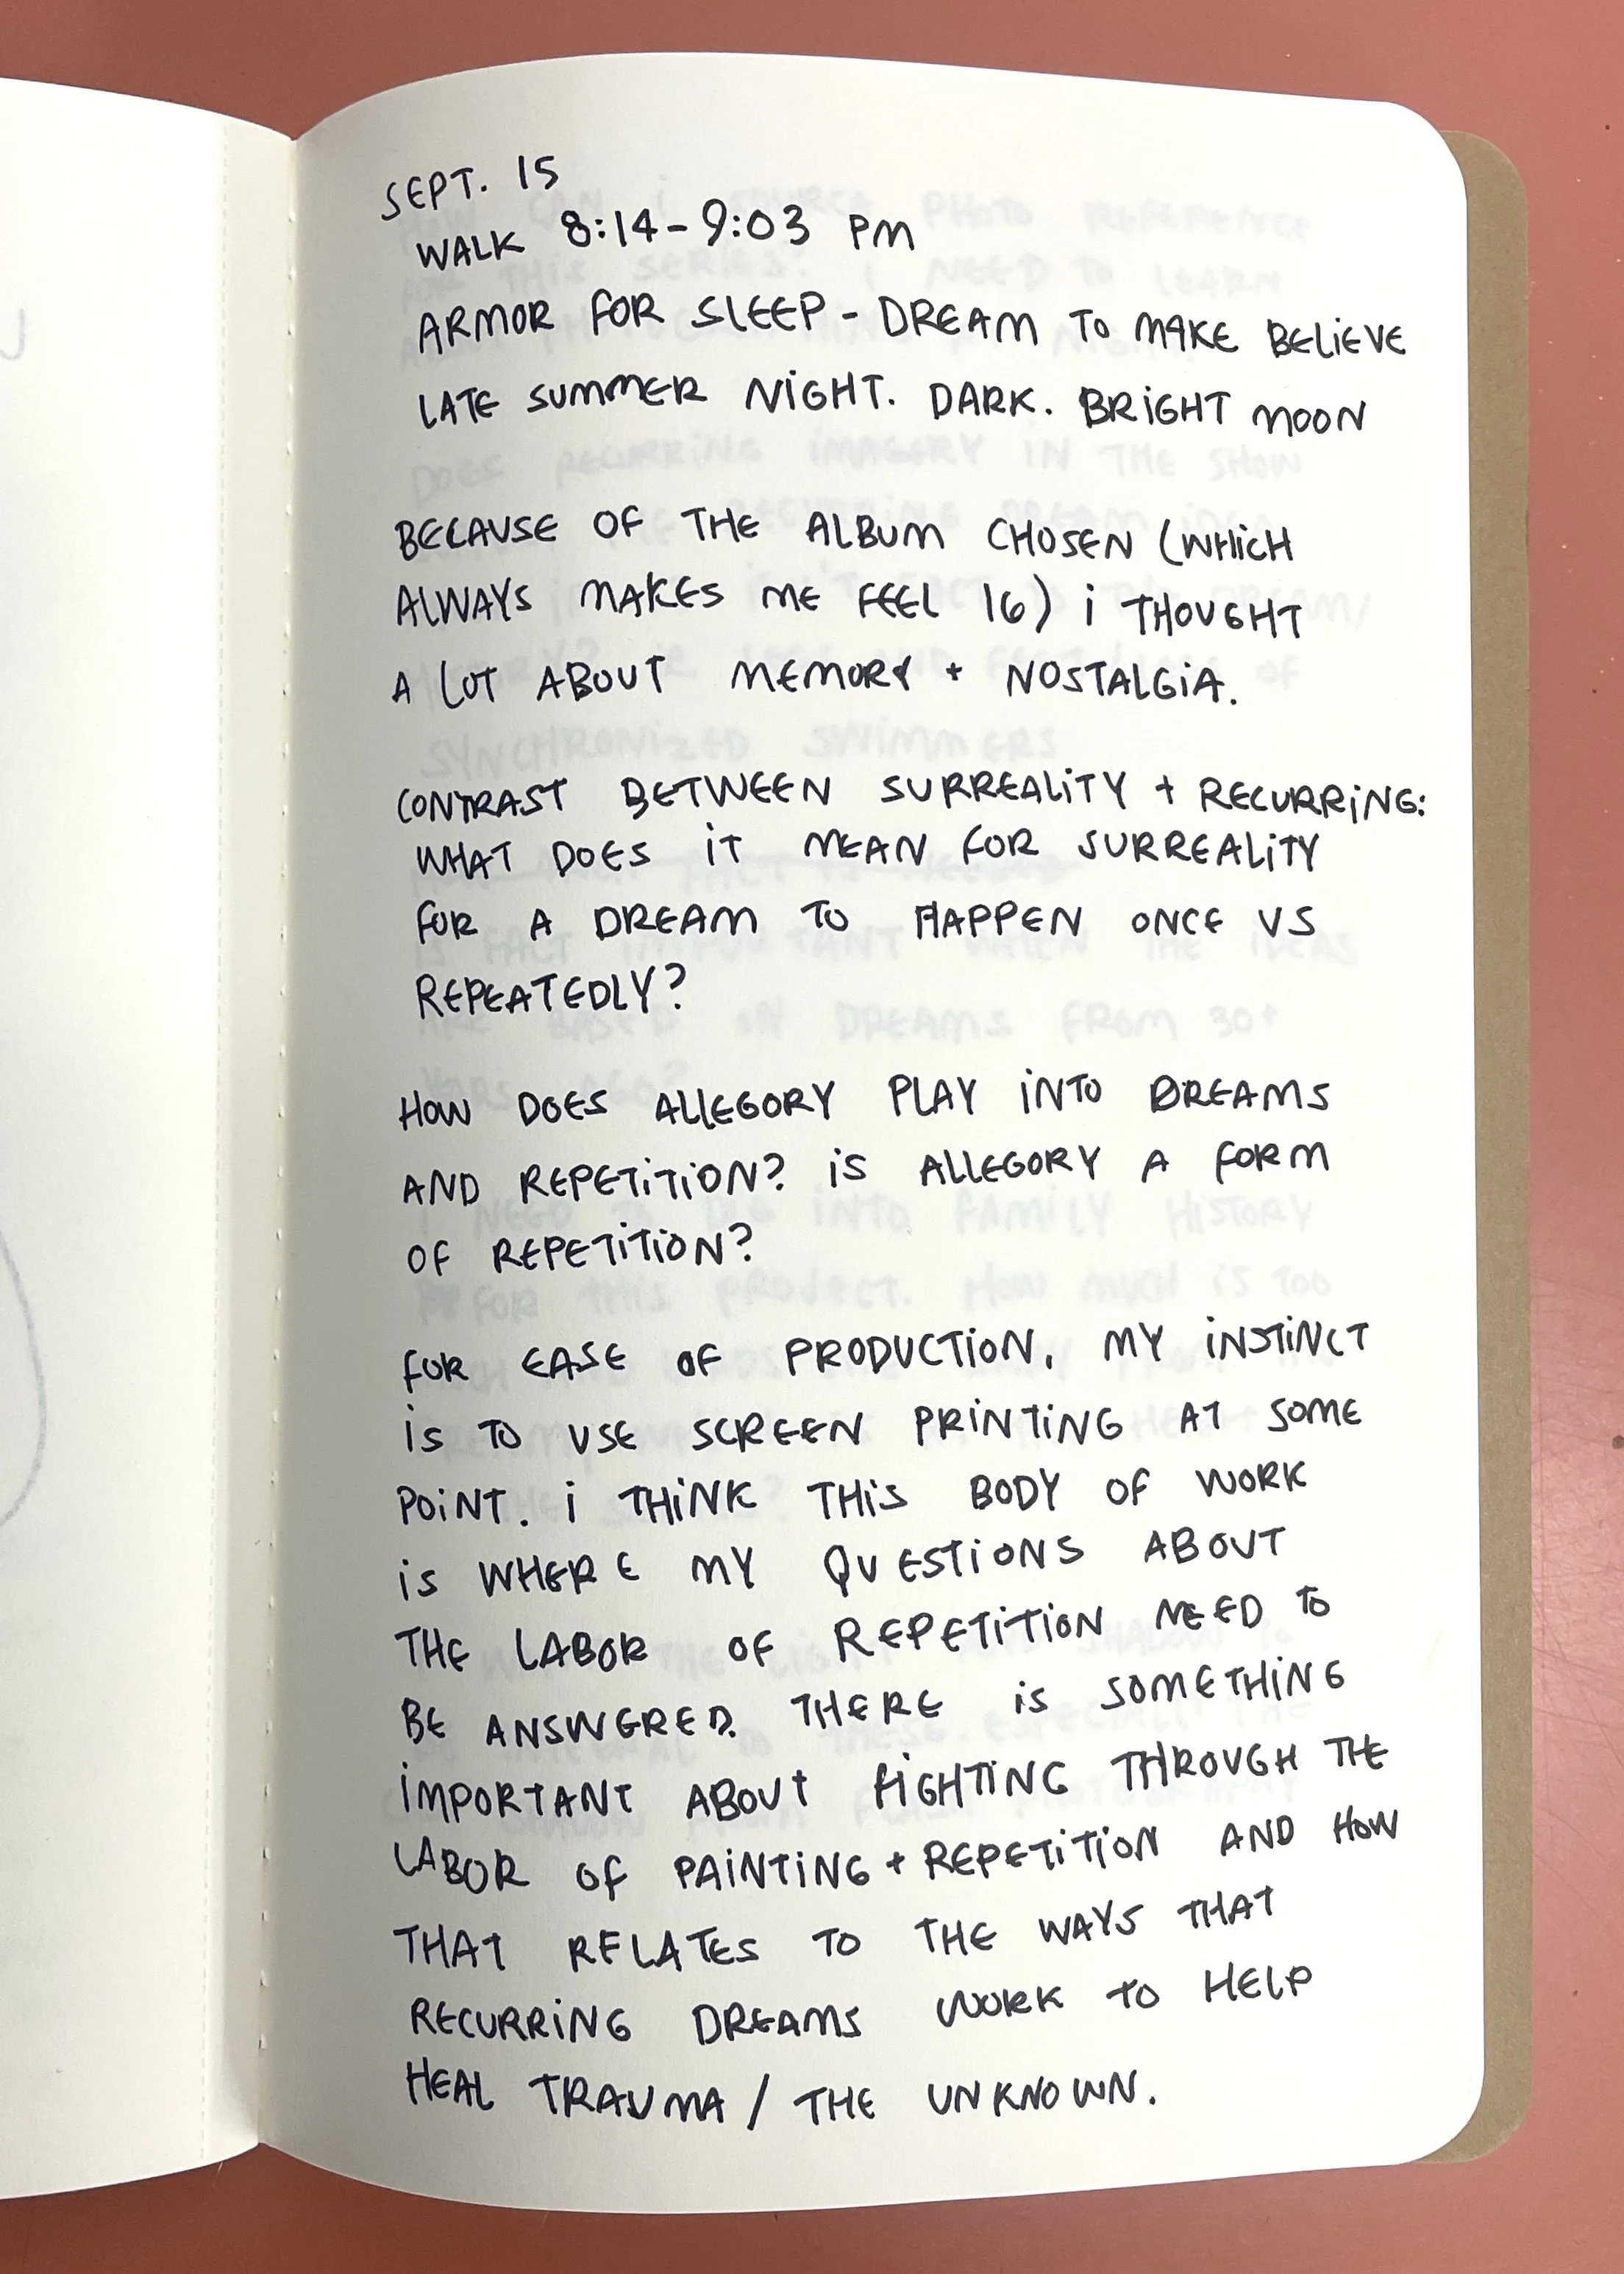 SEPT. 15
WALK 8:14-9:03 PM
ARMOR FOR SLEEP - DREAM TO MAKE BELIEVE
LATE SUMMER NIGHT. DARK. BRIGHT MOON
BECAUSE OF THE ALBUM CHOSEN (WHiCH
ALWAYS MAKES ME FEEL 16) i THOUGHT
A LOT ABOUT MEMORY + NOSTALGiA.
CONTRAST BETWEEN SURREALiTY + RECURRiNG:
WHAT DOES iT MEAN FOR SURREALiTY
FOR A DREAM TO HAPPEN ONCE VS
REPEATEDLY?
HOW DOES ALLEGORY PLAY iNTO DREAMS
AND REPETiTiON? iS ALLEGORY A FORM
OF REPETiTiON?
FOR EASE OF PRODUCTiON, MY iNSTiNCT
iS TO USE SCREEN PRiNTiNG AT SOME
POiNT. i THiNK THiS BODY OF WORK
iS WHERE MY QUESTiONS ABOUT
THE LABOR OF REPETiTiON NEED TO
BE ANSWERED. THERE iS SOMETHiNG
iMPORTANT ABOUT FiGHTiNG THROUGH THE
LABOR OF PAiNTiNG + REPETiTiON AND HOW
THAT RELATES TO THE WAYS THAT
RECURRiNG DREAMS WORK TO HELP
HEAL TRAUMA / THE UNKNOWN.